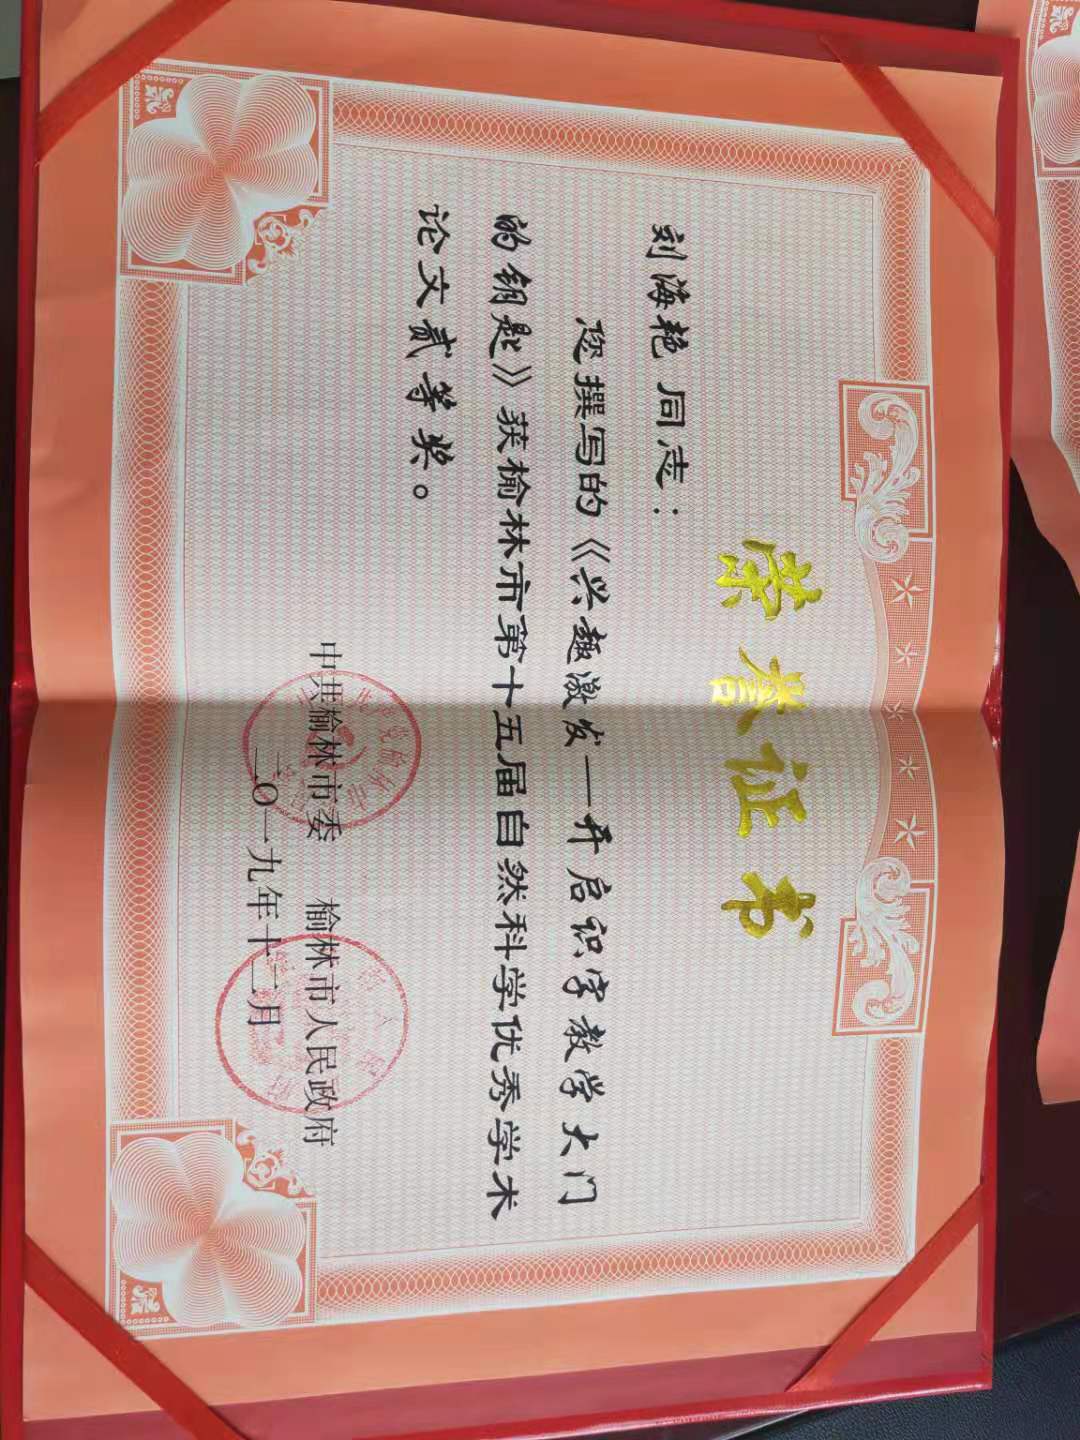 荣誉证书
刘海艳同志：
您撰写的《兴趣激发—开启识字教学大门
的钥匙》获榆林市第十五届自然科学优秀学术
论文贰等奖。
中共榆林市委 榆林市人民政府
二〇一九年十二月